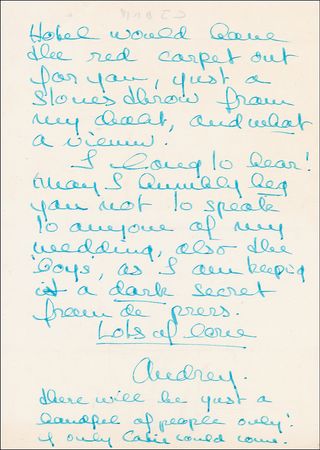 Hotel would have
the red carpet out
for you, just a
stones throw from
my chalet, and what
a vieuw.
I long to hear!
May I humbly beg
you not to speak
to anyone of my
wedding, also the
'boys', as I am keeping
it a dark secret
from de press.
Lots of love
Audrey.
there will be just a
handful of people only!
if only could come.